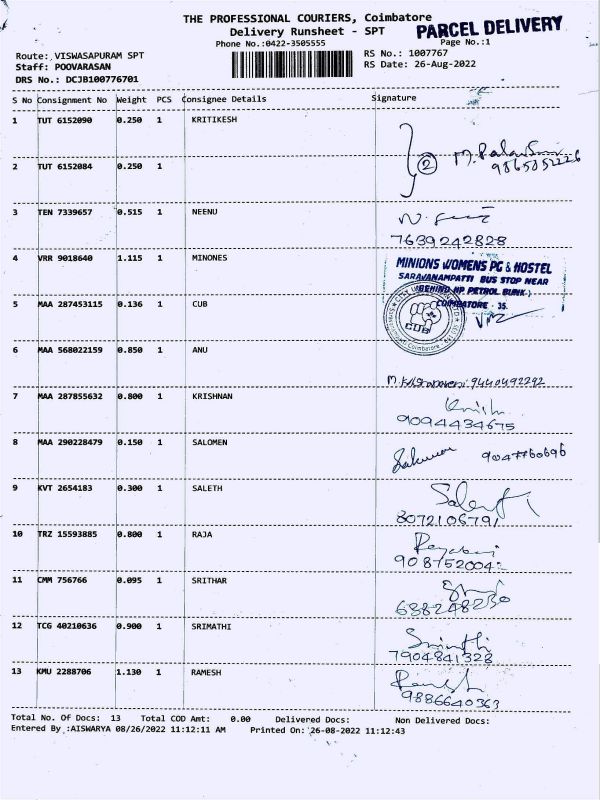 THE PROFESSIONAL COURIERS, Coimbatore
Delivery Runsheet - SPT
PARCEL DELIVERY
Phone No.:0422-3505555
Page No.:1
Route: VISWASAPURAM SPT
RS No.: 1007767
Staff: POOVARASAN
RS Date: 26-Aug-2022
DRS No.: DCJB100776701
S No Consignment No Weight PCS Consignee Details Signature
1 TUT 6152090 0.250 1 KRITIKESH
2 TUT 6152084 0.250 1
2 9865852226
3 TEN 7339657 0.515 1 NEENU
7639242828
4 VRR 9018640 1.115 1 MINONES
MINIONS WOMENS PG & HOSTEL
SARAVANAMPATTI BUS STOP NEAR
(BEHIND HP PETROL BUNK)
COIMBATORE - 35.
5 MAA 287453115 0.136 1 CUB
CUB
6 MAA 568022159 0.850 1 ANU
9440492292
7 MAA 287855632 0.800 1 KRISHNAN
9094434675
8 MAA 290228479 0.150 1 SALOMEN
9047760696
9 KVT 2654183 0.300 1 SALETH
8072106791
10 TRZ 15593885 0.800 1 RAJA
11 CMM 756766 0.095 1 SRITHAR
12 TCG 40210636 0.900 1 SRIMATHI
7904841328
13 KMU 2288706 1.130 1 RAMESH
Ramesh
9886640363
Total No. Of Docs: 13 Total COD Amt: 0.00 Delivered Docs: Non Delivered Docs:
Entered By :AISWARYA 08/26/2022 11:12:11 AM Printed On: 26-08-2022 11:12:43